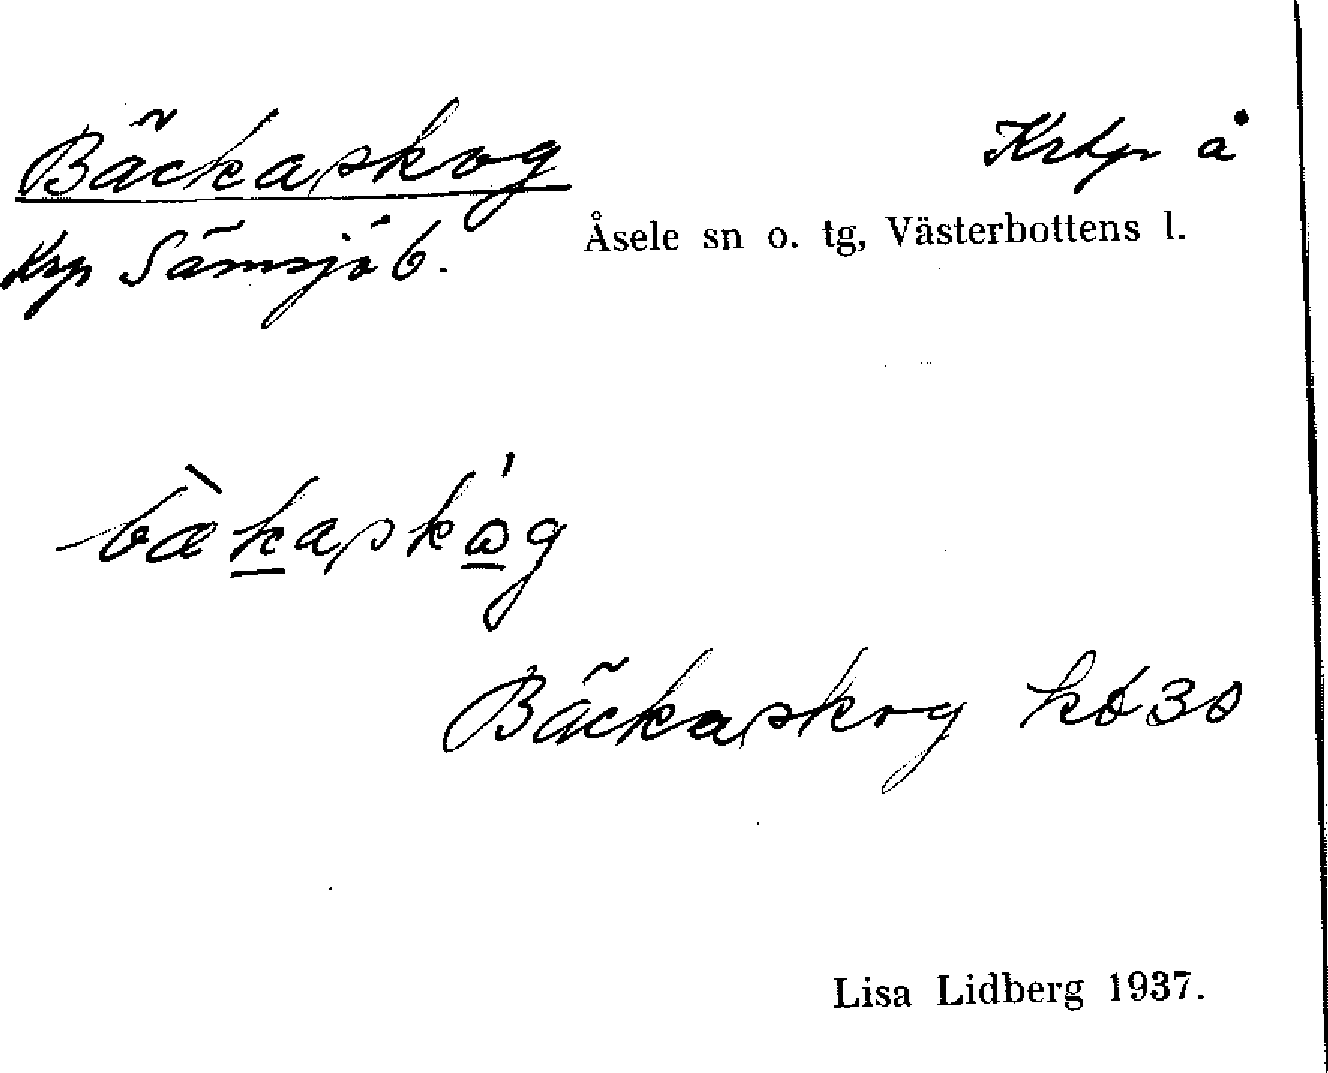 Bäckaskog
Krtpr å
Krp Sämsjö 6.
Åsele sn o. tg, Västerbottens l.
bæ̀kaskɷ́g
Bäckaskog kö30
Lisa Lidberg 1937.